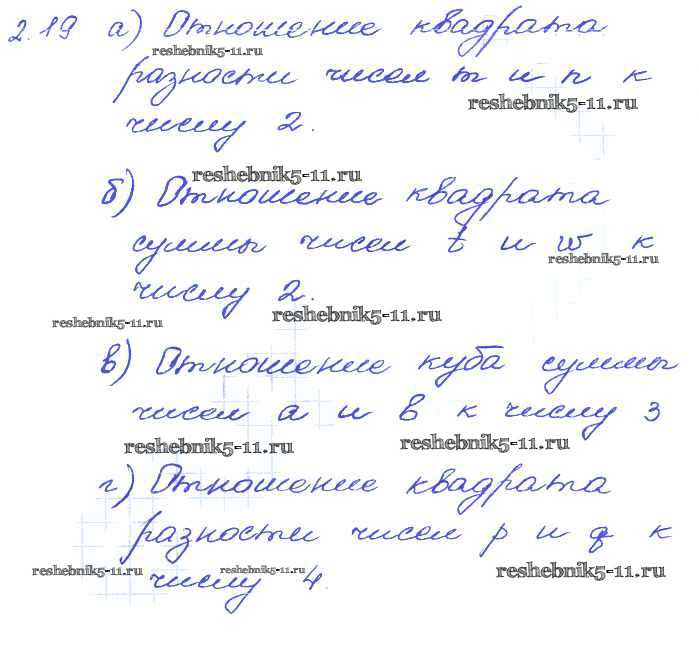 2.19 а) Отношение квадрата
reshebnik5-11.ru
разности чисел m и n к
reshebnik5-11.ru
числу 2.
reshebnik5-11.ru
б) Отношение квадрата
суммы чисел t и w к
reshebnik5-11.ru
числу 2.
reshebnik5-11.ru
reshebnik5-11.ru
в) Отношение куба суммы
чисел a и b к числу 3
reshebnik5-11.ru
reshebnik5-11.ru
г) Отношение квадрата
разности чисел p и q к
reshebnik5-11.ru
reshebnik5-11.ru
reshebnik5-11.ru
числу 4.